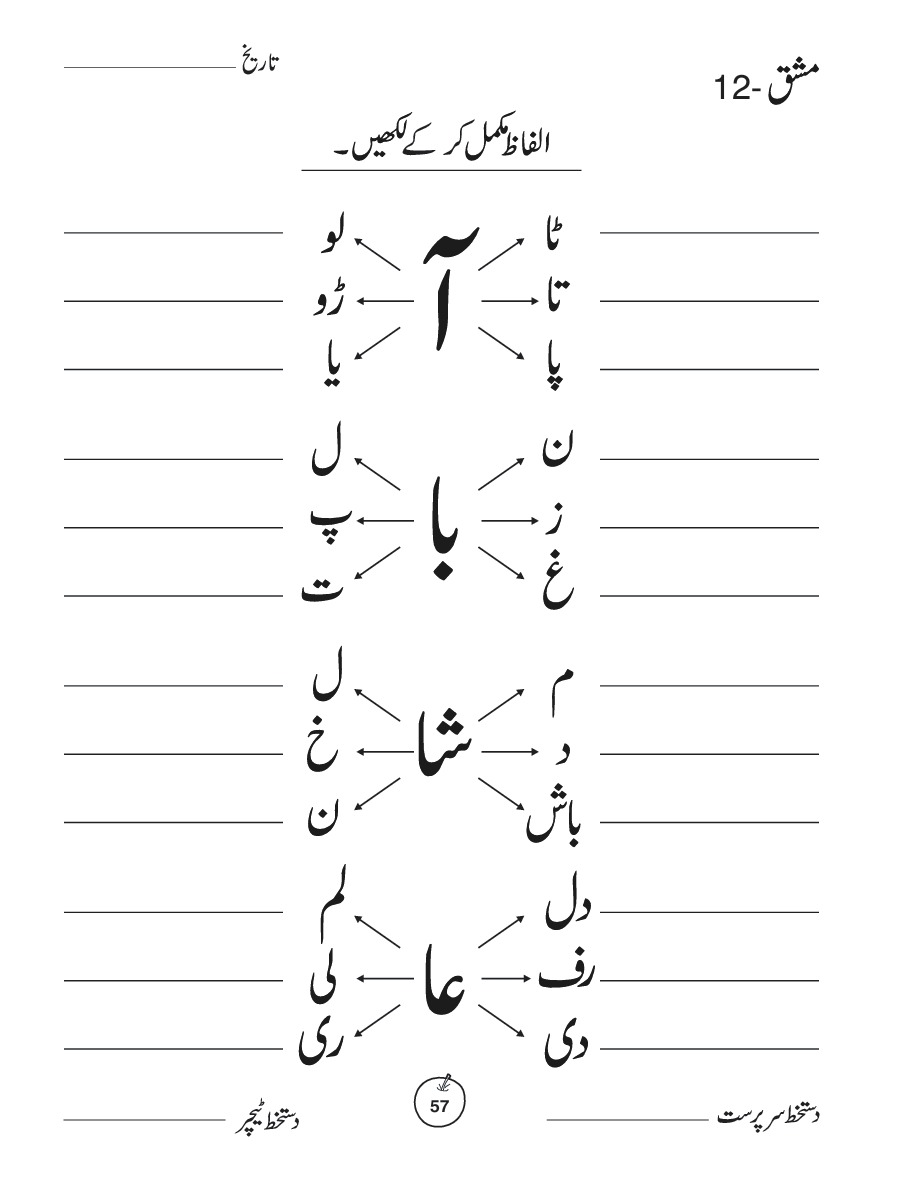 تاریخ
مشق -12
الفاظ مکمل کر کے لکھیں۔
ٹا آ لو
تا ڑو
پا یا
ن با ل
ز پ
غ ت
م شا ل
د خ
باش ن
دل عا لم
رف لی
دی ری
دستخط سرپرست 57 دستخط ٹیچر